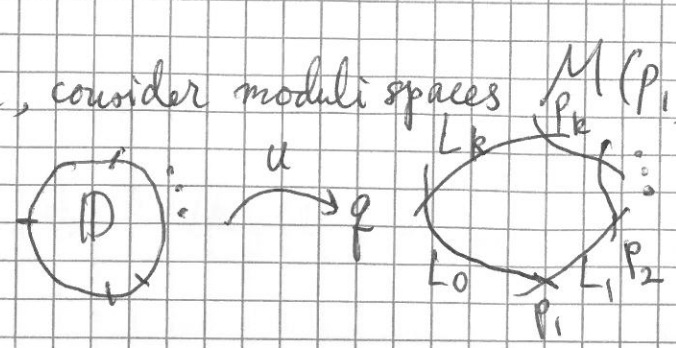 , consider moduli spaces M(p₁
u
D
q
L_k
p_k
L_0
L_1
p_1
p_2